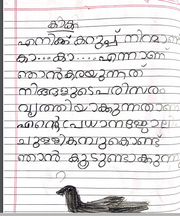 കാക്ക
എനിക്ക് കറുപ്പ് നിറമാണ്
കാ... കാ.... എന്നാണ്
ഞാൻ കരയുന്നത്
നിങ്ങളുടെ പരിസരം
വൃത്തിയാക്കുന്നതാണ്
എന്റെ പ്രധാന ജോലി
ചുള്ളികമ്പുകൊണ്ട്
ഞാൻ കൂടുണ്ടാക്കുന്നു